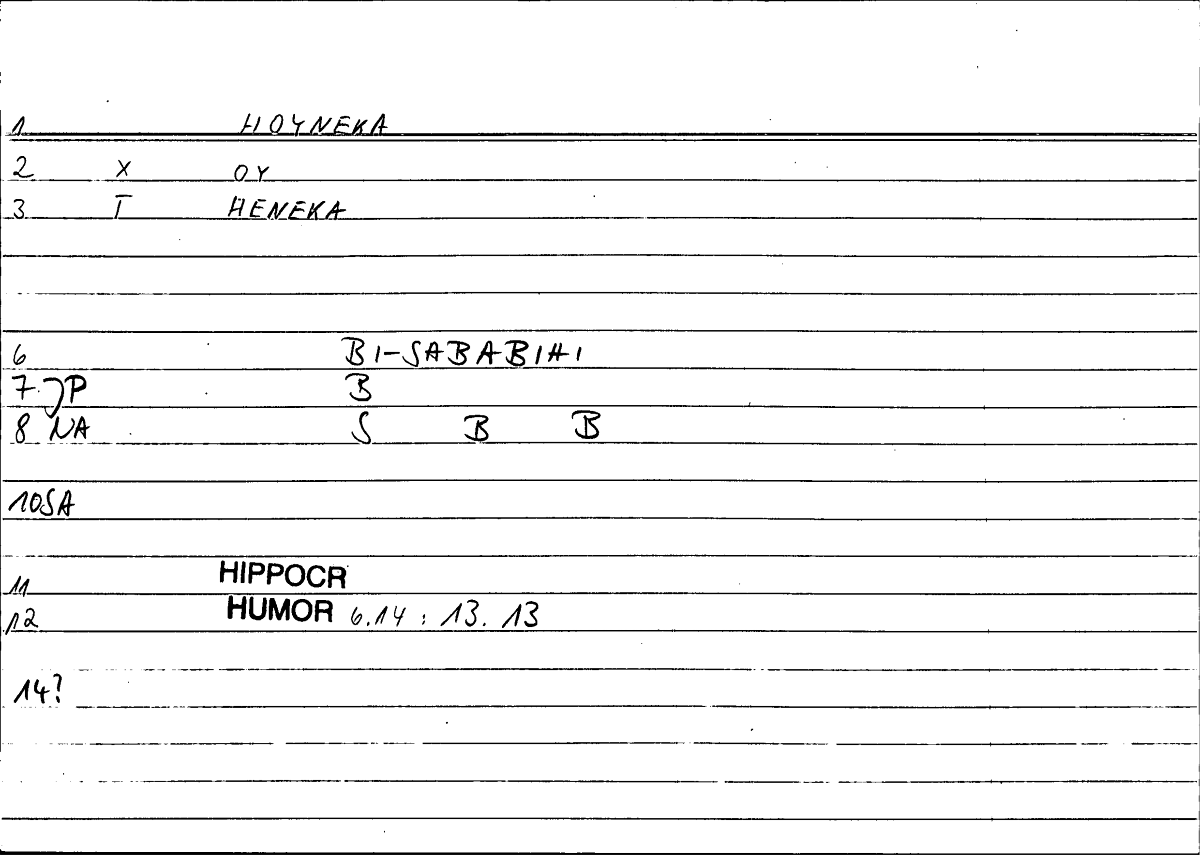 1 HOYNEKA
2 X OY
3 T HENEKA
6 BI-SABABIHI
7 JP B
8 NA S B B
10 SA
11 HIPPOCR
12 HUMOR 6.14 : 13. 13
14?